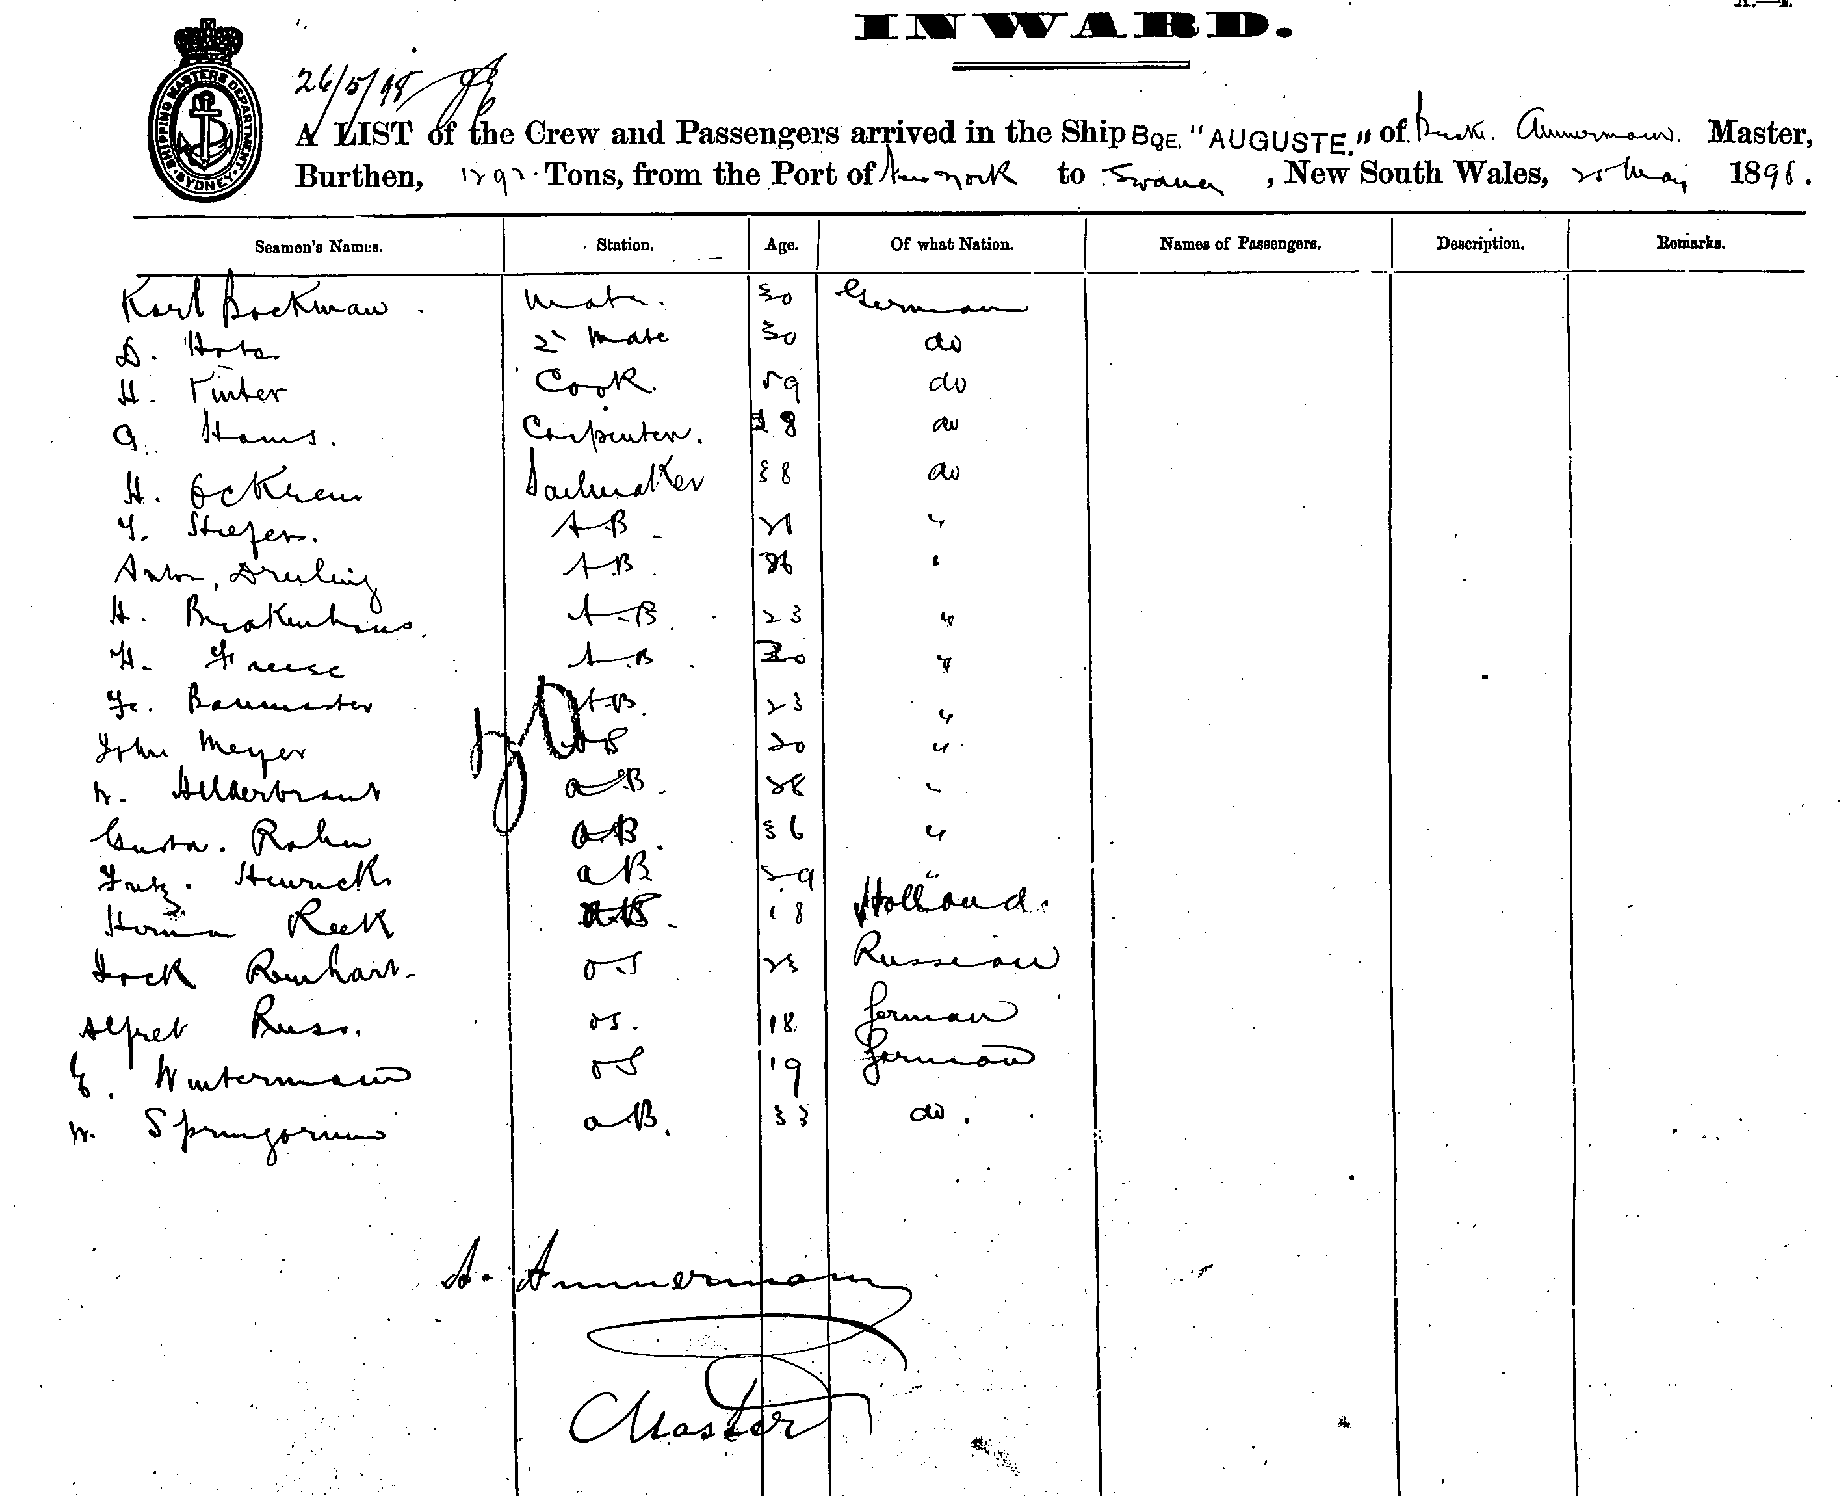 INWARD.
SHIPPING MASTERS DEPARTMENT SYDNEY
26/5/98
A LIST of the Crew and Passengers arrived in the Ship BQE. "AUGUSTE." of Ammermann. Master,
Burthen, 1292 Tons, from the Port of New York to Swansea, New South Wales, 25 May 1898.
Seamen's Names. Station. Age. Of what Nation. Names of Passengers. Description. Remarks.
Karl Bockman mate. 30 German
D. 2 mate 30 do
H. Vinter Cook. 59 do
G. Hams. Carpenter. 8 do
H. Sailmaker 38 do
Stiefers. A B "
Anton, Dreiling A B "
H. A B 23 "
H. A B "
Fr. Baumaster A B. 23 "
John Meyer O S 20 "
W. Hilderbrant a B. 28 "
Gusta. Rohn a B. 36 "
Fritz. Hinrichs a B 29 "
Herman Reek 18 Holland.
Reinhart. O S 23 Russian
Alfret Russ. O S. 18 German
E. Wintermann O S 19 German
W. Springorum a B. 33 do.
A. Ammermann
Master